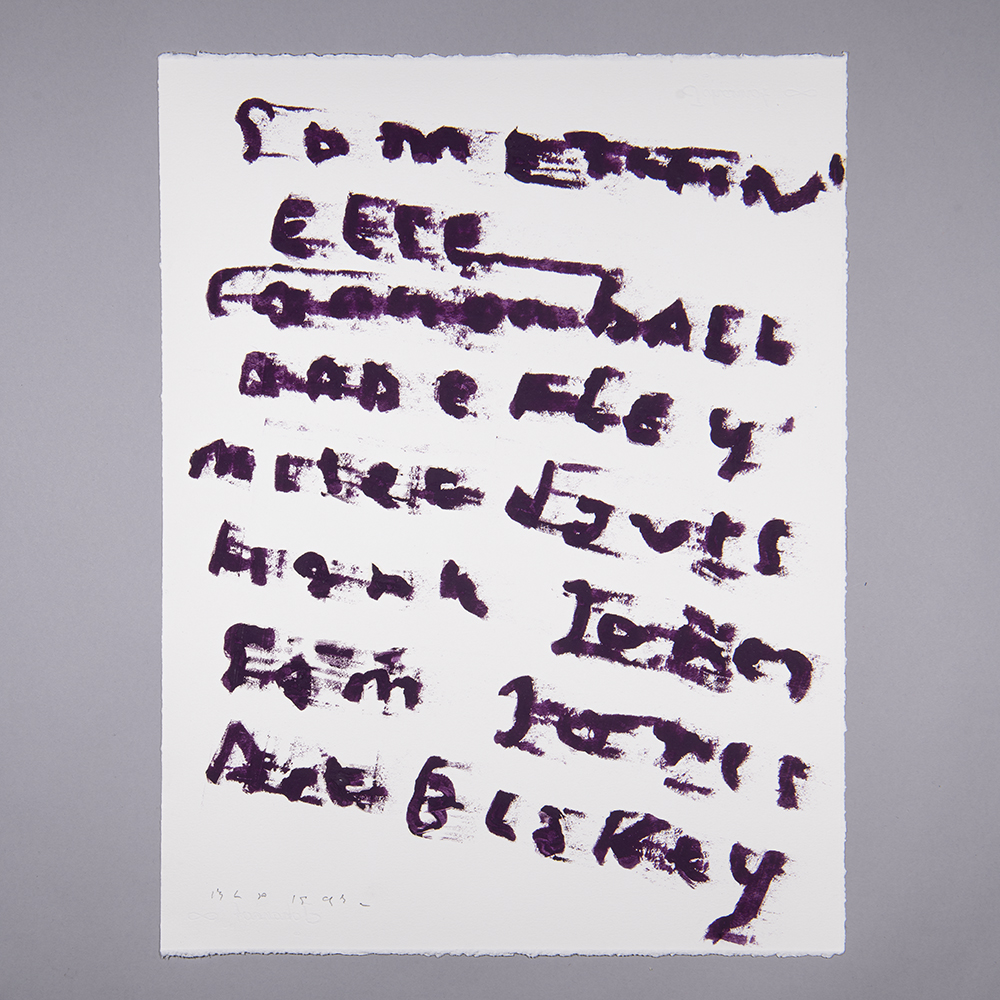 Somethin'
ELSE
CannonbALL
ADDerLey
miles Davis
Hank Jones
Sam Jones
Art Blakey